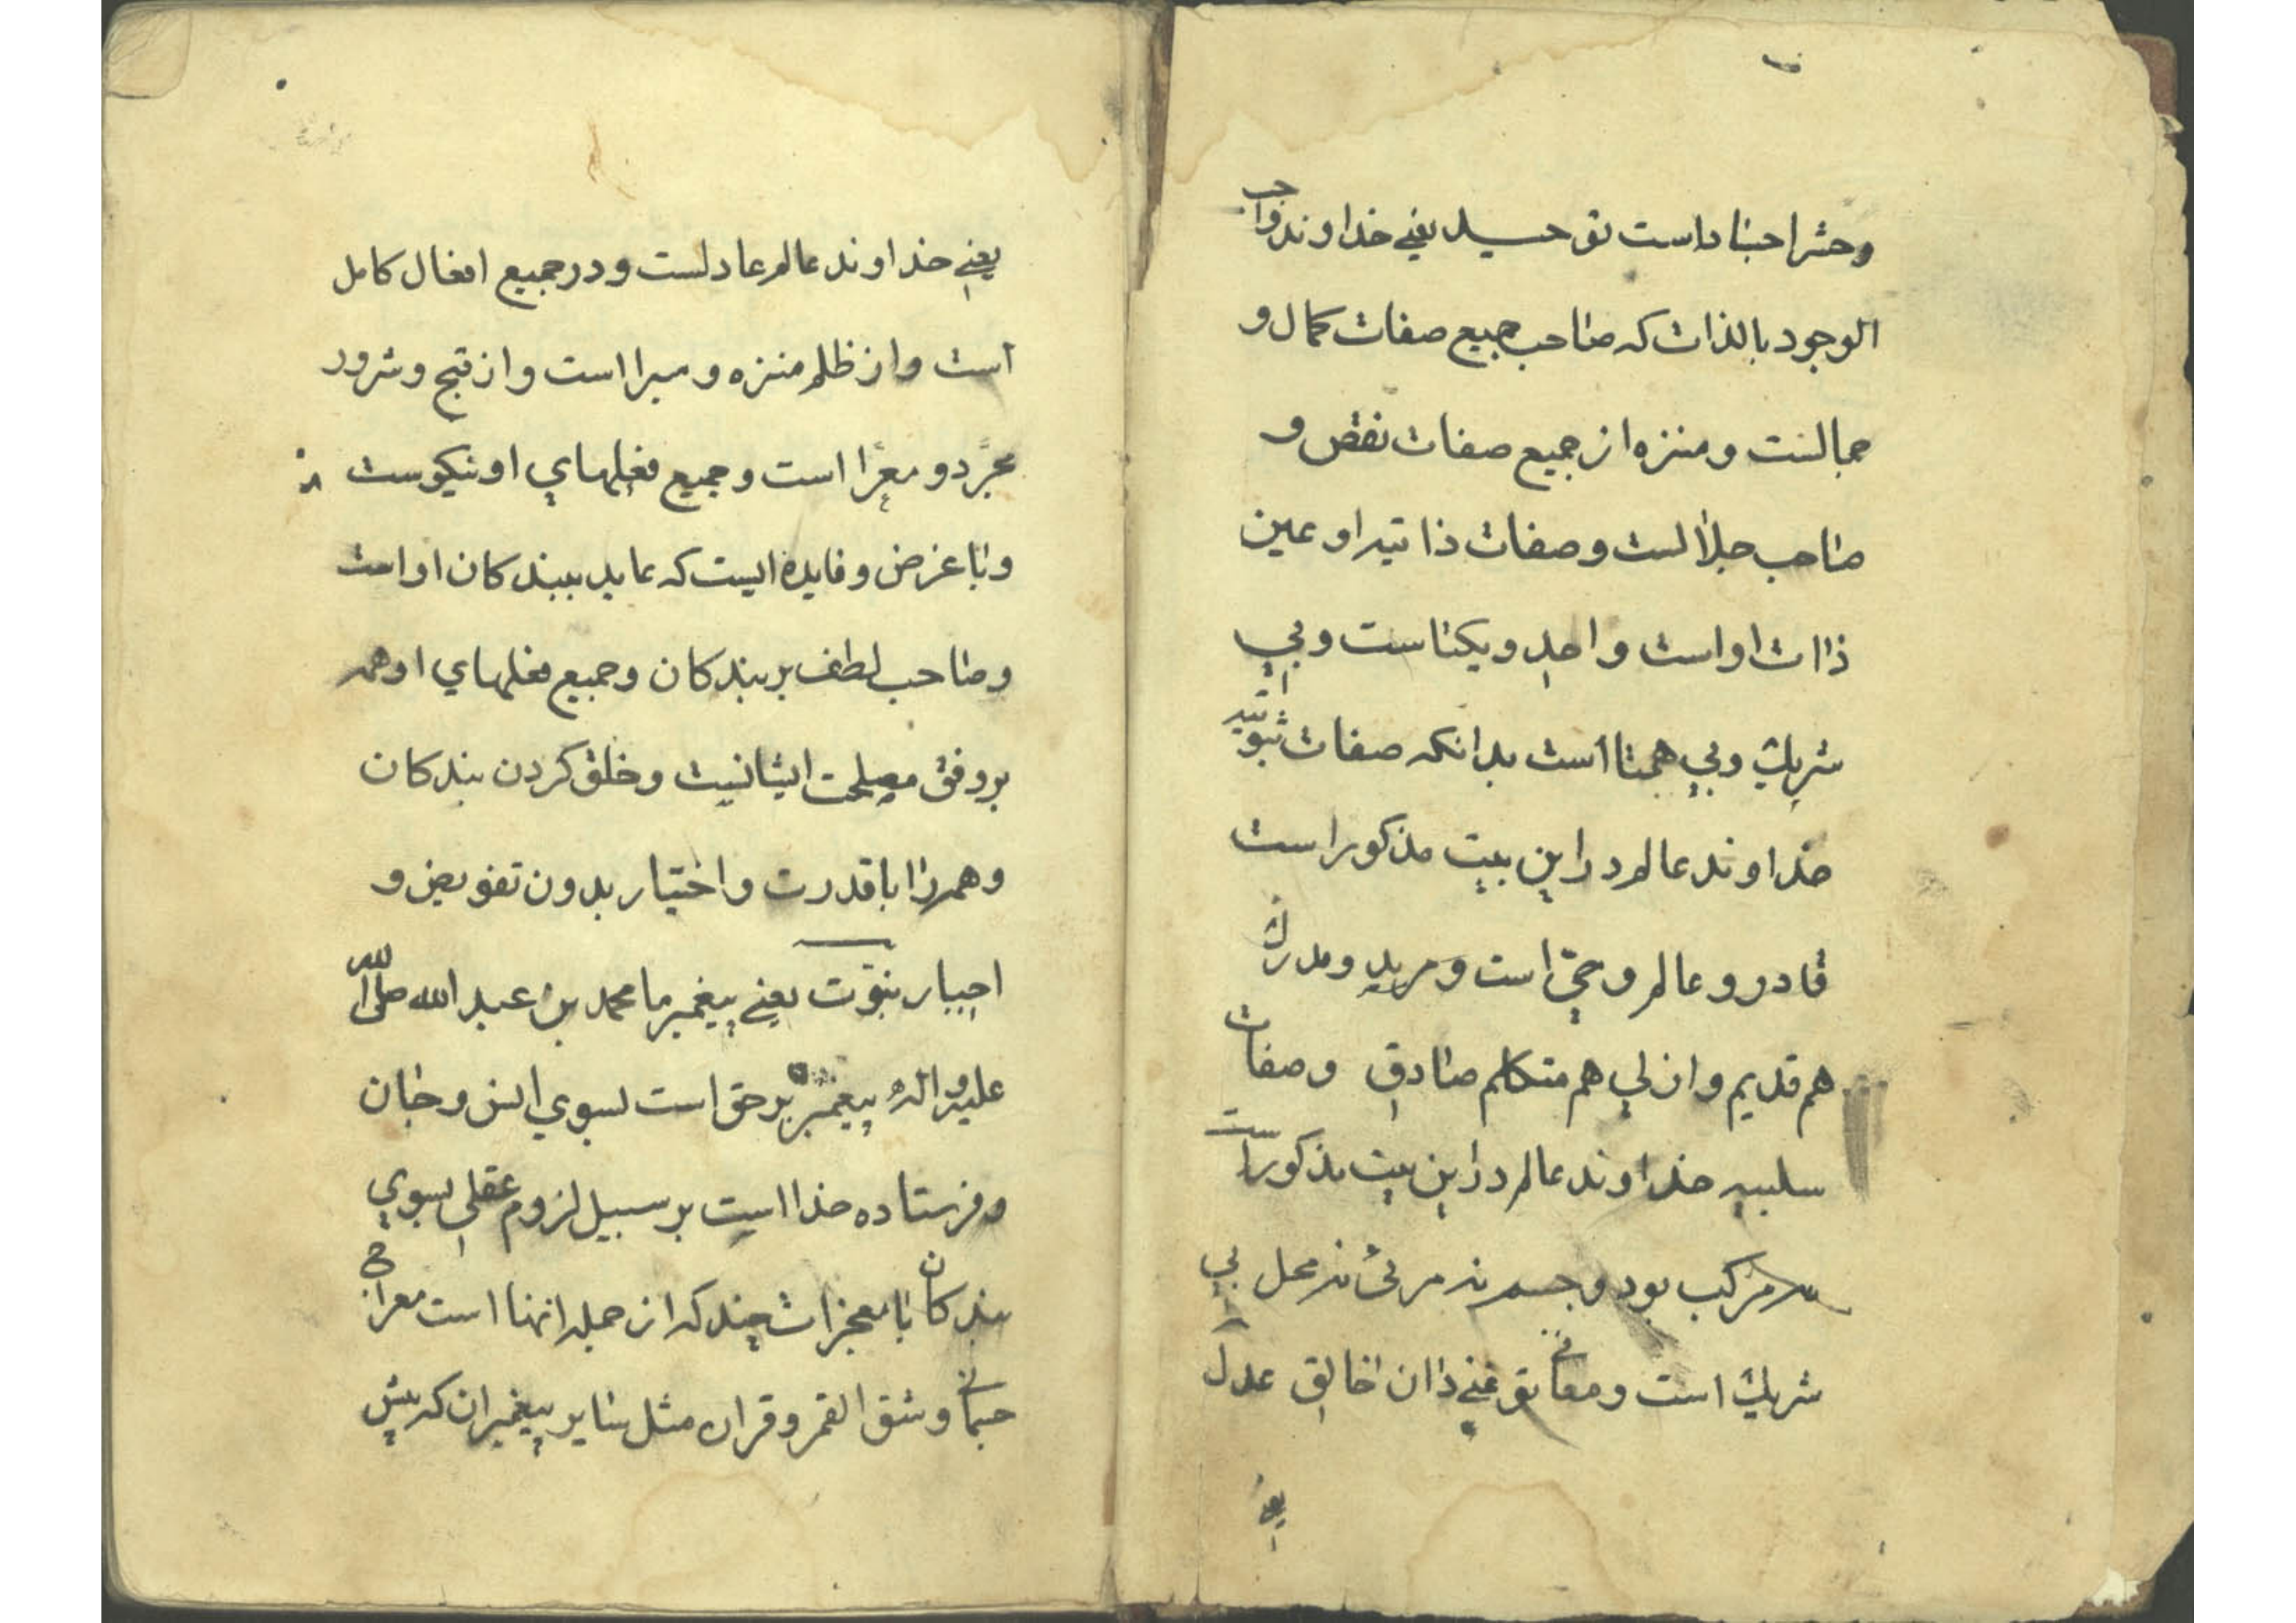 وحشر اجساد است توحید یعنی خداوند واجب
الوجود بالذات که صاحب جمیع صفات کمال و
جمالست و منزه از جمیع صفات نقص و
صاحب جلالست و صفات ذاتیه او عین
ذات او است و احد و یکتاست و بی
شریک و بی همتا است بدانکه صفات ثبوتیه
خداوند عالم در این بیت مذکور است
قادر و عالم و حیّ است و مرید و مدرک
هم قدیم و ازلی هم متکلم صادق وصفات
سلبیه خداوند عالم در این بیت مذکور است
نه مرکب بود و جسم نه مرئی نه محل بی
شریک است و معانی تو غنی دان خالق عدل
یعنی
یعنی خداوند عالم عادلست و در جمیع افعال کامل
است و از ظلم منزه و مبرا است و از قبح و شرور
مجرّد و معرّا است و جمیع فعلهای او نیکوست
و با غرض و فایده ایست که عاید ببندکان او است
و صاحب لطف بر بندکان و جمیع فعلهای او همه
بر وفق مصلحت ایشانیت و خلق کردن بندکان
و همه را با قدرت و اختیار بدون تفویض و
اجبار نبوّت یعنی پیغمبر ما محمد بن عبد الله صلی الله
علیه واله پیغمبر بر حق است بسوی انس و جان
و فرستاده خدا است بر سبیل لزوم عقلی بسوی
بندکان با معجزات چند که از جمله انها است معراج
جسمانی و شق القمر و قران مثل سایر پیغمبران که پیش